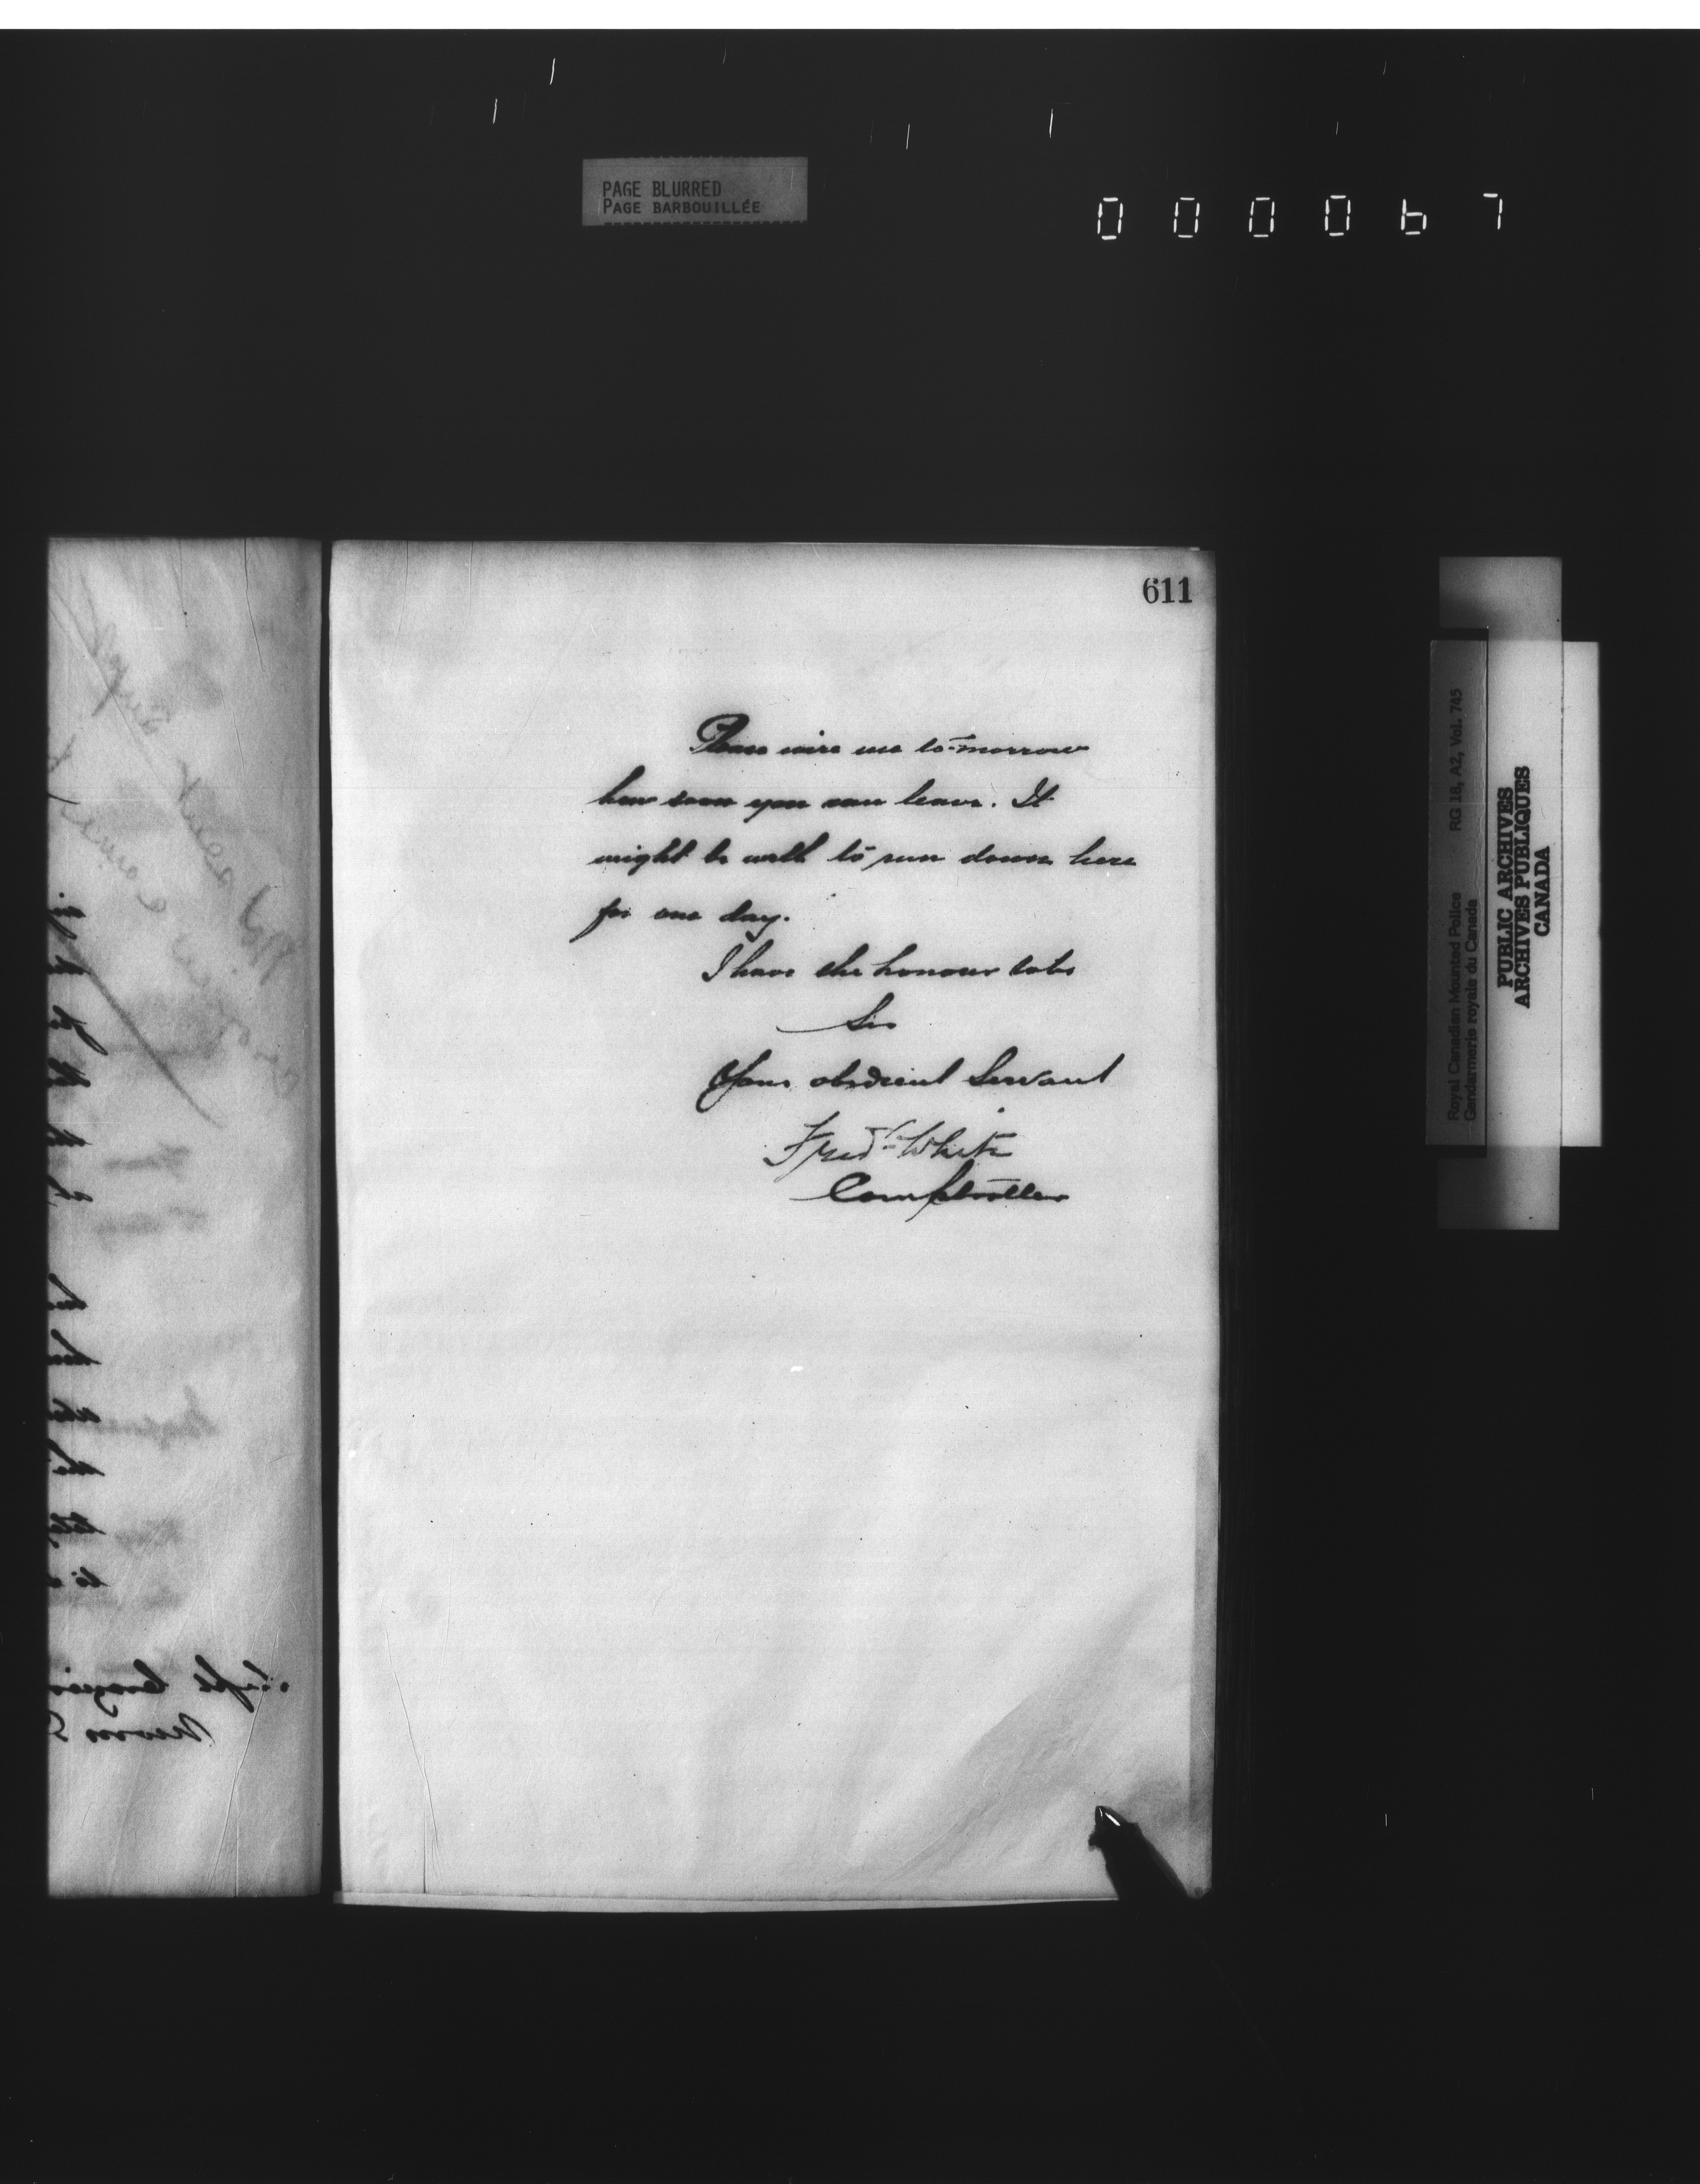 PAGE BLURRED
PAGE BARBOUILLÉE
000067
611
Please wire me to-morrow
how soon you can leave. It
might be well to run down here
for one day.
I have the honour to be
Sir
Your obedient Servant
Fred White
Comptroller
Royal Canadian Mounted Police RG 18, A2, Vol. 745
Gendarmerie royale du Canada
PUBLIC ARCHIVES
ARCHIVES PUBLIQUES
CANADA